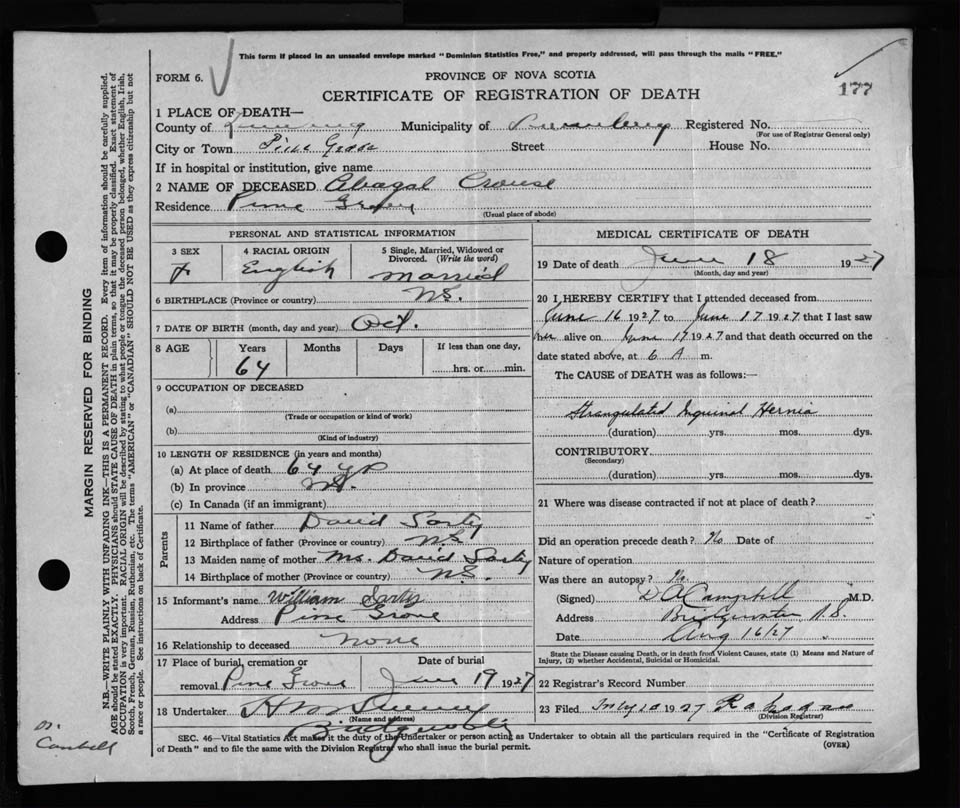 This form if placed in an unsealed envelope marked "Dominion Statistics Free," and properly addressed, will pass through the mails "FREE."
FORM 6.
PROVINCE OF NOVA SCOTIA
CERTIFICATE OF REGISTRATION OF DEATH
177
1 PLACE OF DEATH—
County of Municipality of Lunenburg Registered No.
(For use of Registrar General only)
City or Town Pine Grove Street House No.
If in hospital or institution, give name
2 NAME OF DECEASED Abagal Crouse
Residence Pine Grove
(Usual place of abode)
PERSONAL AND STATISTICAL INFORMATION
3 SEX 4 RACIAL ORIGIN 5 Single, Married, Widowed or Divorced. (Write the word)
F English Married
6 BIRTHPLACE (Province or country) N.S.
7 DATE OF BIRTH (month, day and year) Oct.
8 AGE Years Months Days If less than one day,
64 hrs. or min.
9 OCCUPATION OF DECEASED
(a)
(Trade or occupation or kind of work)
(b)
(Kind of industry)
10 LENGTH OF RESIDENCE (in years and months)
(a) At place of death 64 yrs
(b) In province N.S.
(c) In Canada (if an immigrant)
Parents
11 Name of father David
12 Birthplace of father (Province or country) N.S.
13 Maiden name of mother Mrs. David
14 Birthplace of mother (Province or country) N.S.
15 Informant's name William
Address Pine Grove
16 Relationship to deceased None
17 Place of burial, cremation or Date of burial
removal Pine Grove June 19 1927
18 Undertaker
(Name and address)
Bridgewater
MEDICAL CERTIFICATE OF DEATH
19 Date of death June 18 1927
(Month, day and year)
20 I HEREBY CERTIFY that I attended deceased from
June 16 1927 to June 17 1927 that I last saw
her alive on June 17 1927 and that death occurred on the
date stated above, at 6 A m.
The CAUSE of DEATH was as follows:—
Strangulated Inguinal Hernia
(duration) yrs. mos. dys.
CONTRIBUTORY
(Secondary)
(duration) yrs. mos. dys.
21 Where was disease contracted if not at place of death?
Did an operation precede death? No Date of
Nature of operation
Was there an autopsy? No
(Signed) D A Campbell M.D.
Address Bridgewater N.S.
Date Aug 16/27
State the Disease causing Death, or in death from Violent Causes, state (1) Means and Nature of
Injury, (2) whether Accidental, Suicidal or Homicidal.
22 Registrar's Record Number
23 Filed 1927
(Division Registrar)
SEC. 46—Vital Statistics Act makes it the duty of the Undertaker or person acting as Undertaker to obtain all the particulars required in the "Certificate of Registration
of Death" and to file the same with the Division Registrar who shall issue the burial permit.
(OVER)
MARGIN RESERVED FOR BINDING
N.B.—WRITE PLAINLY WITH UNFADING INK—THIS IS A PERMANENT RECORD. Every item of information should be carefully supplied.
AGE should be stated EXACTLY. PHYSICIANS should STATE CAUSE OF DEATH in plain terms, so that it may be properly classified. Exact statement of
OCCUPATION is very important. RACIAL ORIGIN will be described by stating to what people or tongue the deceased person belonged, whether English, Irish,
Scotch, French, German, Russian, Ruthenian, etc. The terms "AMERICAN" or "CANADIAN" SHOULD NOT BE USED as they express citizenship but not
a race or people. See instructions on back of Certificate.